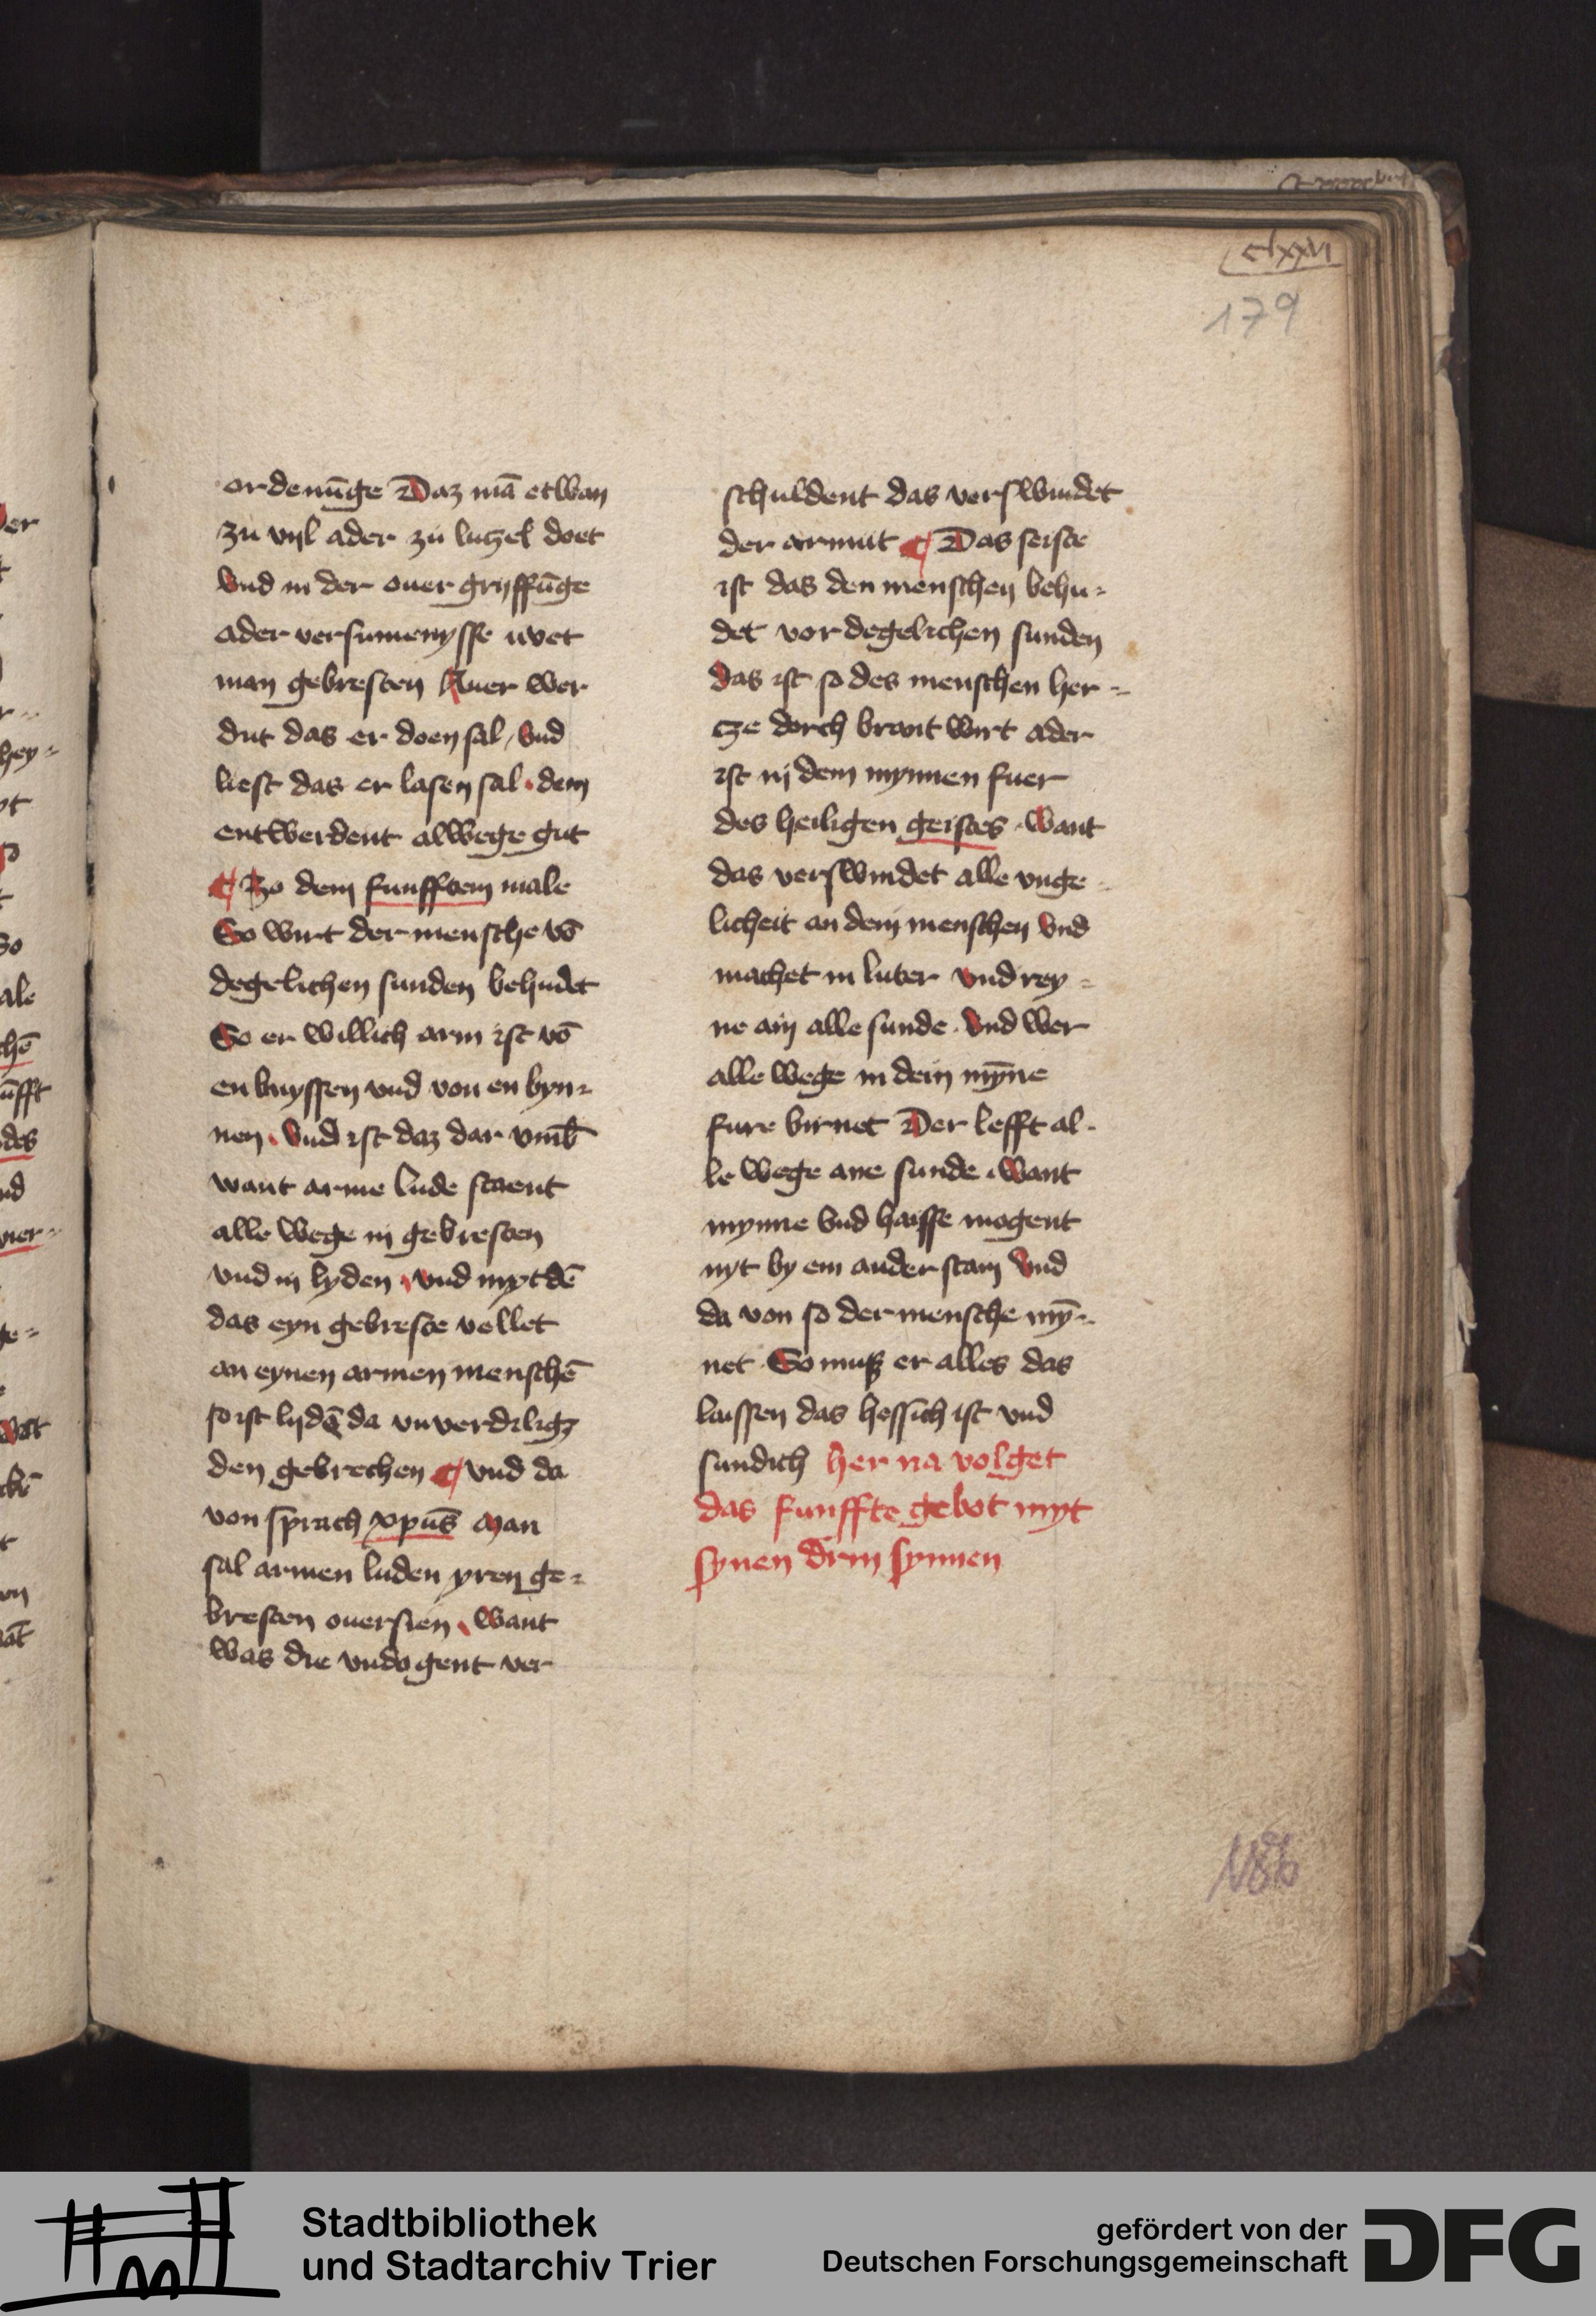 clxxvi
179
ordenūge Daz mā etwan
zu vyl ader zü lutzel doet
vnd in der ouer gryffūge
ader versumenysse uvet
man gebresten Auer wer
dut das er doen sal / vnd
liest das er lasen sal · dem
entwerdent alwege gut
¶ Zo dem funfftem male
So wirt der mensche vō
degelichen sunden behudet
So er willich arm ist vō
en buyssen vnd von en byn-
nen · vnd ist daz dar vmb
want arme lude staent
alle wege in gebresten
vnd in lyden · vnd myt dē
das eyn gebreste vellet
an eynen armen menschē
so ist lydē da vnverdilig
den gebrechen ¶ vnd da
von sprach xpūs Man
sal armen luden yren ge-
bresten ouersien · want
was die vndogent ver
schuldent das verswindet
der armut ¶ Das seiste
ist das den menschen behu-
det vor degelichen sunden
das ist so des menschen her-
tze dorch brant wirt ader
ist in dem mynnen fuer
des heiligen geistes · want
das verswindet alle vnge-
licheit an dem menschen vnd
machet in luter vnd rey-
ne ain alle sunde · vnd wer
alle wege in dem myne
fure birnet Der lefft al-
le wege ane sunde · want
mynne vnd haisse mogent
nyt by ein ander stain vnd
da von so der mensche mȳ-
net · So muß er alles das
laissen das hessich ist vnd
sundich her na volget
das funffte gebot myt
synen drin synnen
186
Stadtbibliothek
und Stadtarchiv Trier
gefördert von der
Deutschen Forschungsgemeinschaft
DFG